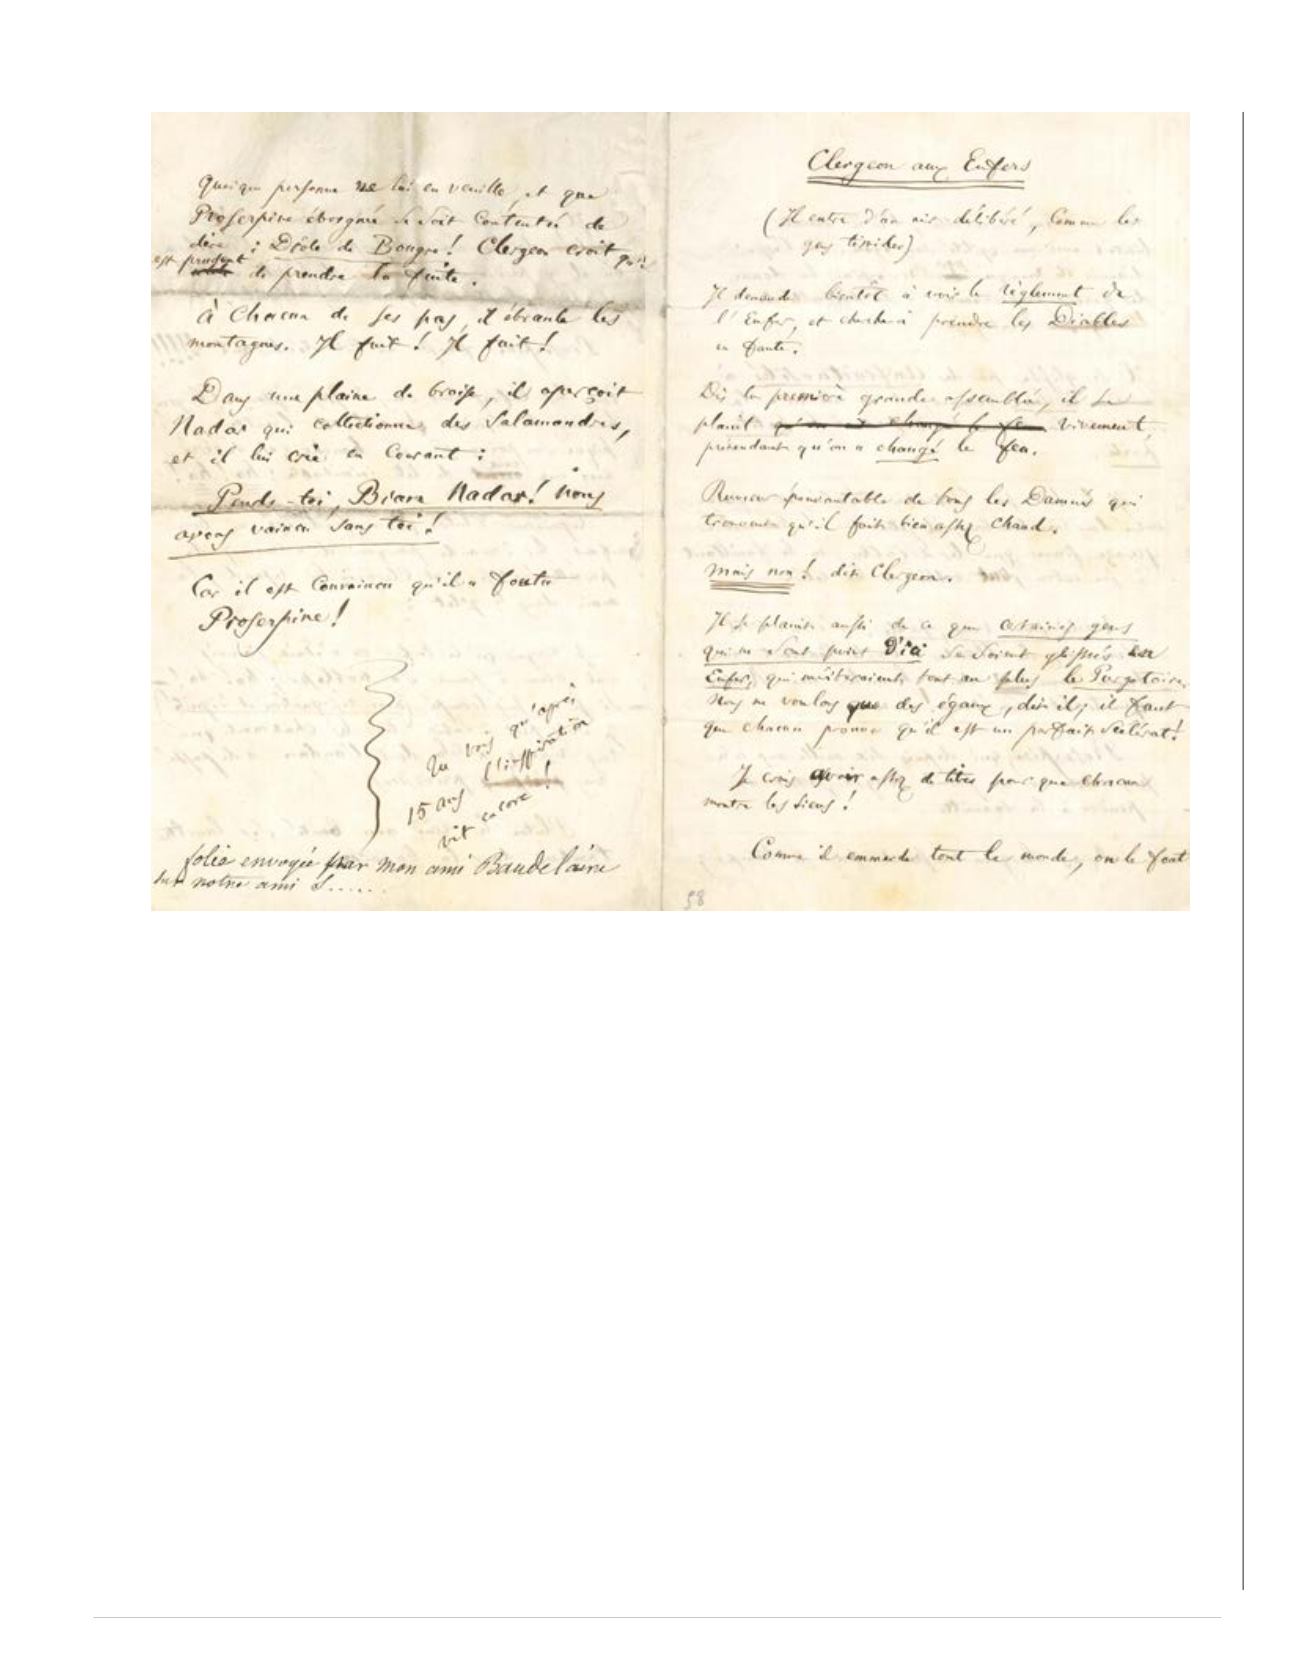 Quoique personne ne lui en veuille, et que
Proserpine éborgnée se soit contentée de
dire : Drôle de Bougre! Clergeon croit qu'il
est prudent
de prendre la fuite.
à chacun de ses pas, il ébranle les
montagnes. Il fuit! Il fuit!
Dans une plaine de braise, il aperçoit
Nadar qui collectionne des Salamandres,
et il lui crie en courant :
Pends-toi, Biau Nadar! nous
avons vaincu sans toi!
Car il est convaincu qu'il a foutu
Proserpine!
Tu vois qu'après
15 ans l'inspiration
vit encore!
folie envoyée par mon ami Baudelaire
sur notre ami S.....
Clergeon aux Enfers
(Il entre d'un air délibéré, comme les
gens timides)
Il demande bientôt à voir le règlement de
l'Enfer, et cherche à prendre les Diables
en faute.
Dès la première grande assemblée, il se
plaint qu'on ait changé le feu vivement,
prétendant qu'on a changé le feu.
Rumeur épouvantable de tous les Damnés qui
trouvent qu'il fait bien assez chaud.
mais non! dit Clergeon.
Il se plaint aussi de ce que certaines gens
qui ne sont point d'ici se soient glissés en
Enfer, qui mériteraient tout au plus le Purgatoire.
Nous ne voulons que des égaux, dit-il; il faut
que chacun prouve qu'il est un parfait scélérat!
Je crois avoir assez de titres pour que chacun
montre les siens!
Comme il emmerde tout le monde, on le fout
58